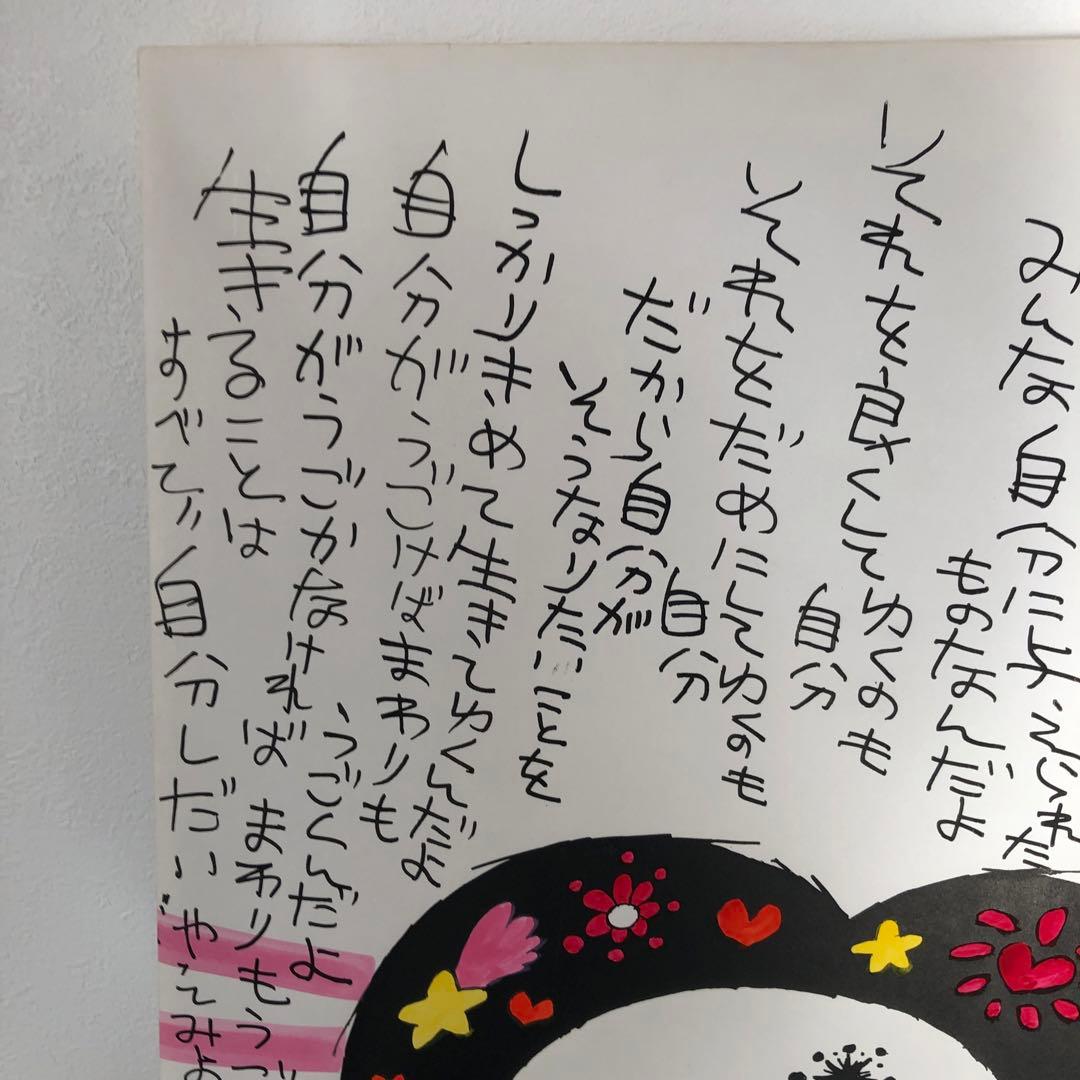 みんな自分に与えられた
ものなんだよ
それを良くしてゆくのも
自分
それをだめにしてゆくのも
自分
だから自分が
そうなりたいことを
しっかりきめて生きてゆくんだよ
自分がうごけばまわりも
うごくんだよ
自分がうごかなければまわりもうご
生きることは
すべて自分しだいやってみよ